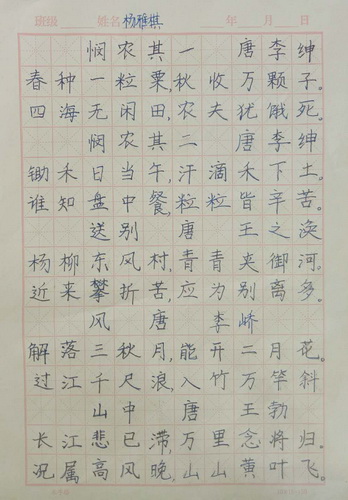 班级 姓名 杨雅棋 年 月 日
悯农其一 唐李绅
春种一粒粟,秋收万颗子。
四海无闲田,农夫犹饿死。
悯农其二 唐李绅
锄禾日当午,汗滴禾下土。
谁知盘中餐,粒粒皆辛苦。
送别 唐 王之涣
杨柳东风村,青青夹御河。
近来攀折苦,应为别离多。
风 唐 李峤
解落三秋月,能开二月花。
过江千尺浪,入竹万竿斜
山中 唐 王勃
长江悲已滞,万里念将归。
况属高风晚,山山黄叶飞。